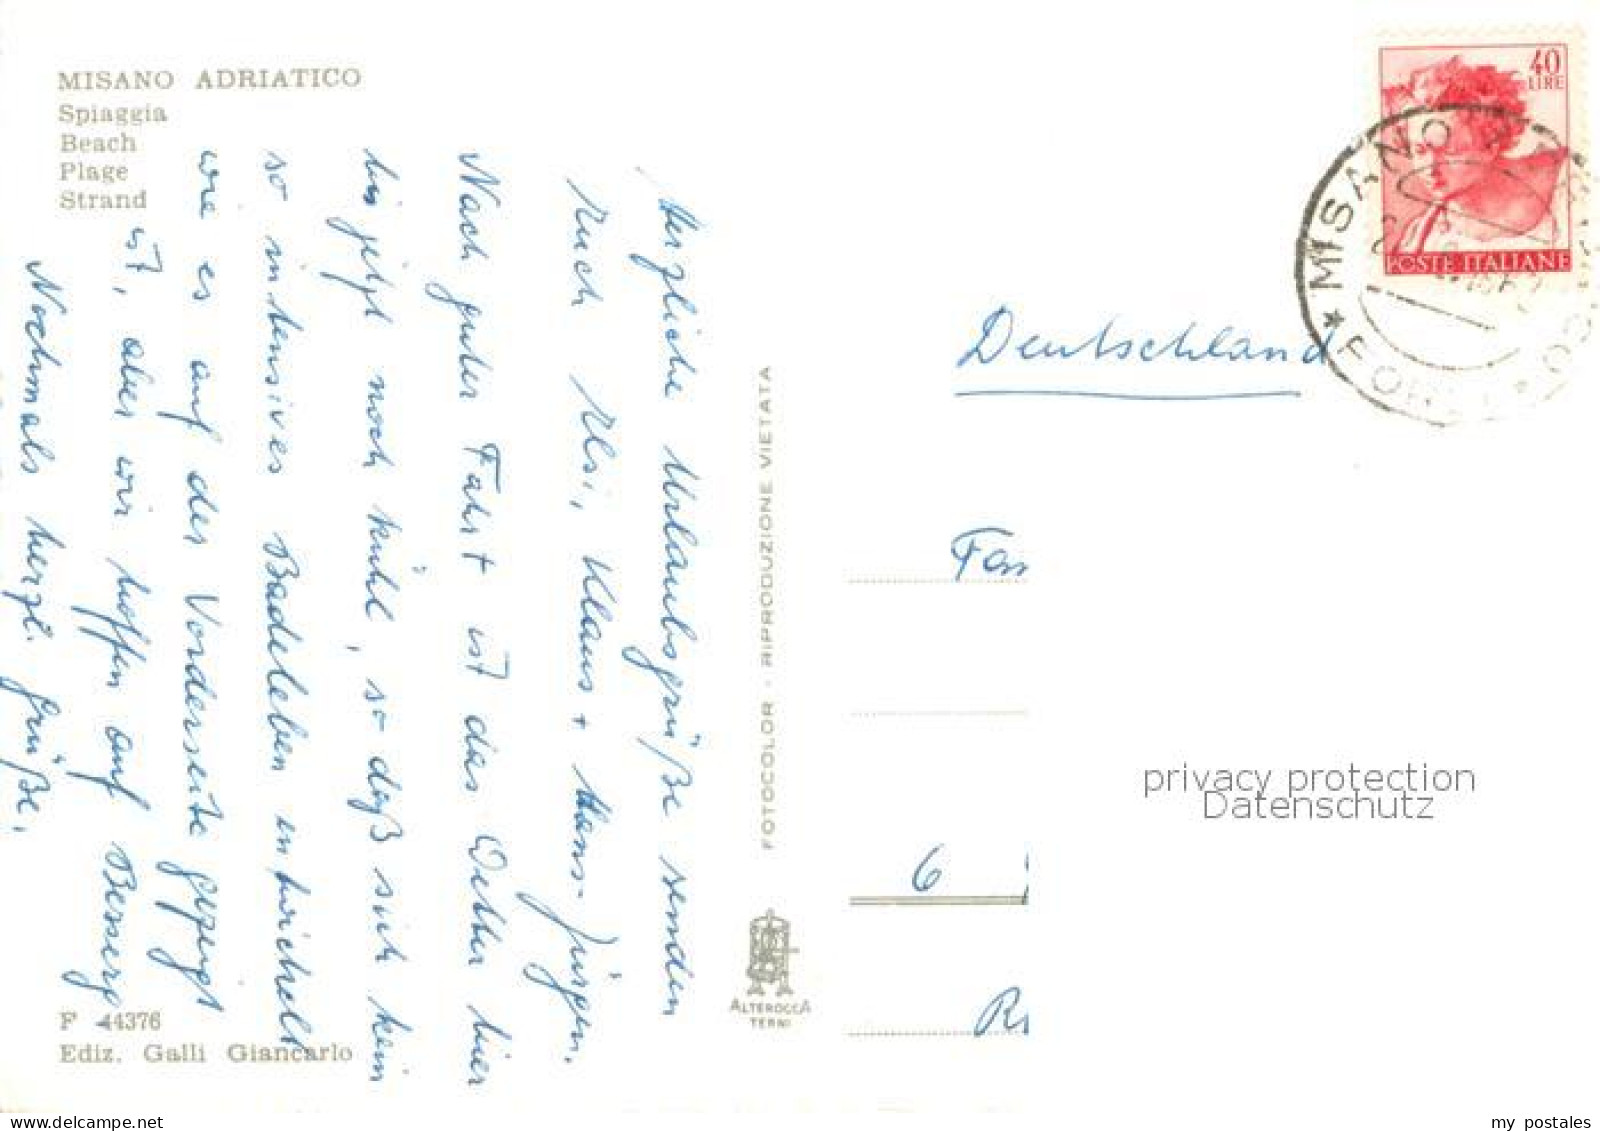 MISANO ADRIATICO
Spiaggia
Beach
Plage
Strand
Herzliche Urlaubsgrüße senden
Euch Ilsi, Klaus + Hans-Jürgen.
Nach guter Fahrt ist das Wetter hier
bis jetzt noch kühl, so daß sich kein
so intensives Badeleben entwickelt
wie es auf der Vorderseite gezeigt
ist, aber wir hoffen auf Besserg.
Nochmals herzl. Grüße,
F 44376
Ediz. Galli Giancarlo
FOTOCOLOR - RIPRODUZIONE VIETATA
ALTEROCCA
TERNI
40
LIRE
POSTE ITALIANE
MISANO
Deutschland
Fam
6
privacy protection
Datenschutz
www.delcampe.net
my_postales